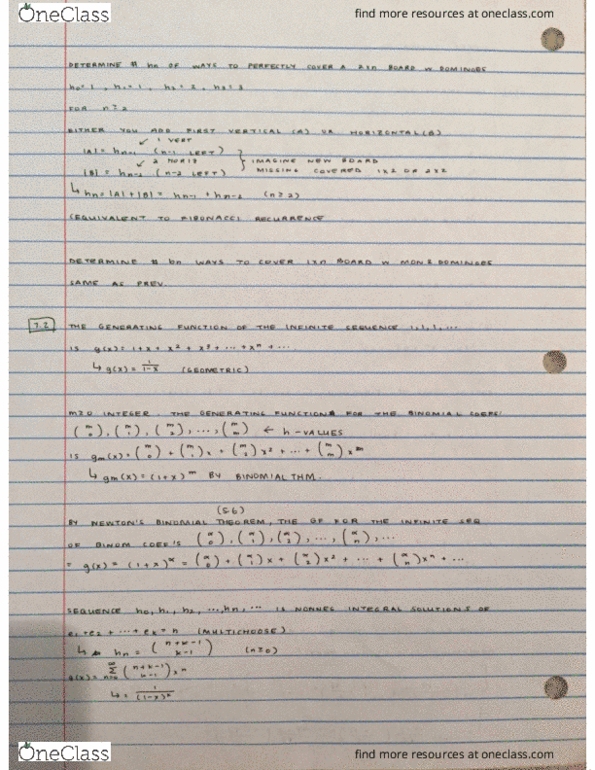 OneClass
find more resources at oneclass.com
DETERMINE # hn OF WAYS TO PERFECTLY COVER A 2×n BOARD W DOMINOES
h0=1, h1=1, h2=2, h3=3
FOR n≥2
EITHER YOU ADD FIRST VERTICAL (A) OR HORIZONTAL (B)
1 VERT
|A| = hn-1 (n-1 LEFT)
2 HORIZ } IMAGINE NEW BOARD
|B| = hn-2 (n-2 LEFT) MISSING COVERED 1×2 OR 2×2
↳ hn = |A| + |B| = hn-1 + hn-2 (n≥2)
(EQUIVALENT TO FIBONACCI RECURRENCE
DETERMINE # bn WAYS TO COVER 1×n BOARD W MON & DOMINOES
SAME AS PREV.
7.2 THE GENERATING FUNCTION OF THE INFINITE SEQUENCE 1,1,1,...
IS g(x) = 1+x+x²+x³+...+xⁿ+...
↳ g(x) = 1/(1-x) (GEOMETRIC)
M≥0 INTEGER. THE GENERATING FUNCTION FOR THE BINOMIAL COEFS:
(m 0), (m 1), (m 2), ..., (m m) ← h-VALUES
IS gm(x) = (m 0) + (m 1)x + (m 2)x² + ... + (m m)x^m
↳ gm(x) = (1+x)^m BY BINOMIAL THM.
(5.6)
BY NEWTON'S BINOMIAL THEOREM, THE GF FOR THE INFINITE SEQ
OF BINOM COEF'S (α 0), (α 1), (α 2), ..., (α n), ...
= g(x) = (1+x)^α = (α 0) + (α 1)x + (α 2)x² + ... + (α n)xⁿ + ...
SEQUENCE h0, h1, h2, ..., hn, ... IS NONNEG INTEGRAL SOLUTIONS OF
e1+e2+...+ek=n (MULTICHOOSE)
↳ hn = (n+k-1 k-1) (n≥0)
g(x) = ∞ Σ n=0 (n+k-1 k-1) xⁿ
↳ = 1/(1-x)^k
OneClass
find more resources at oneclass.com